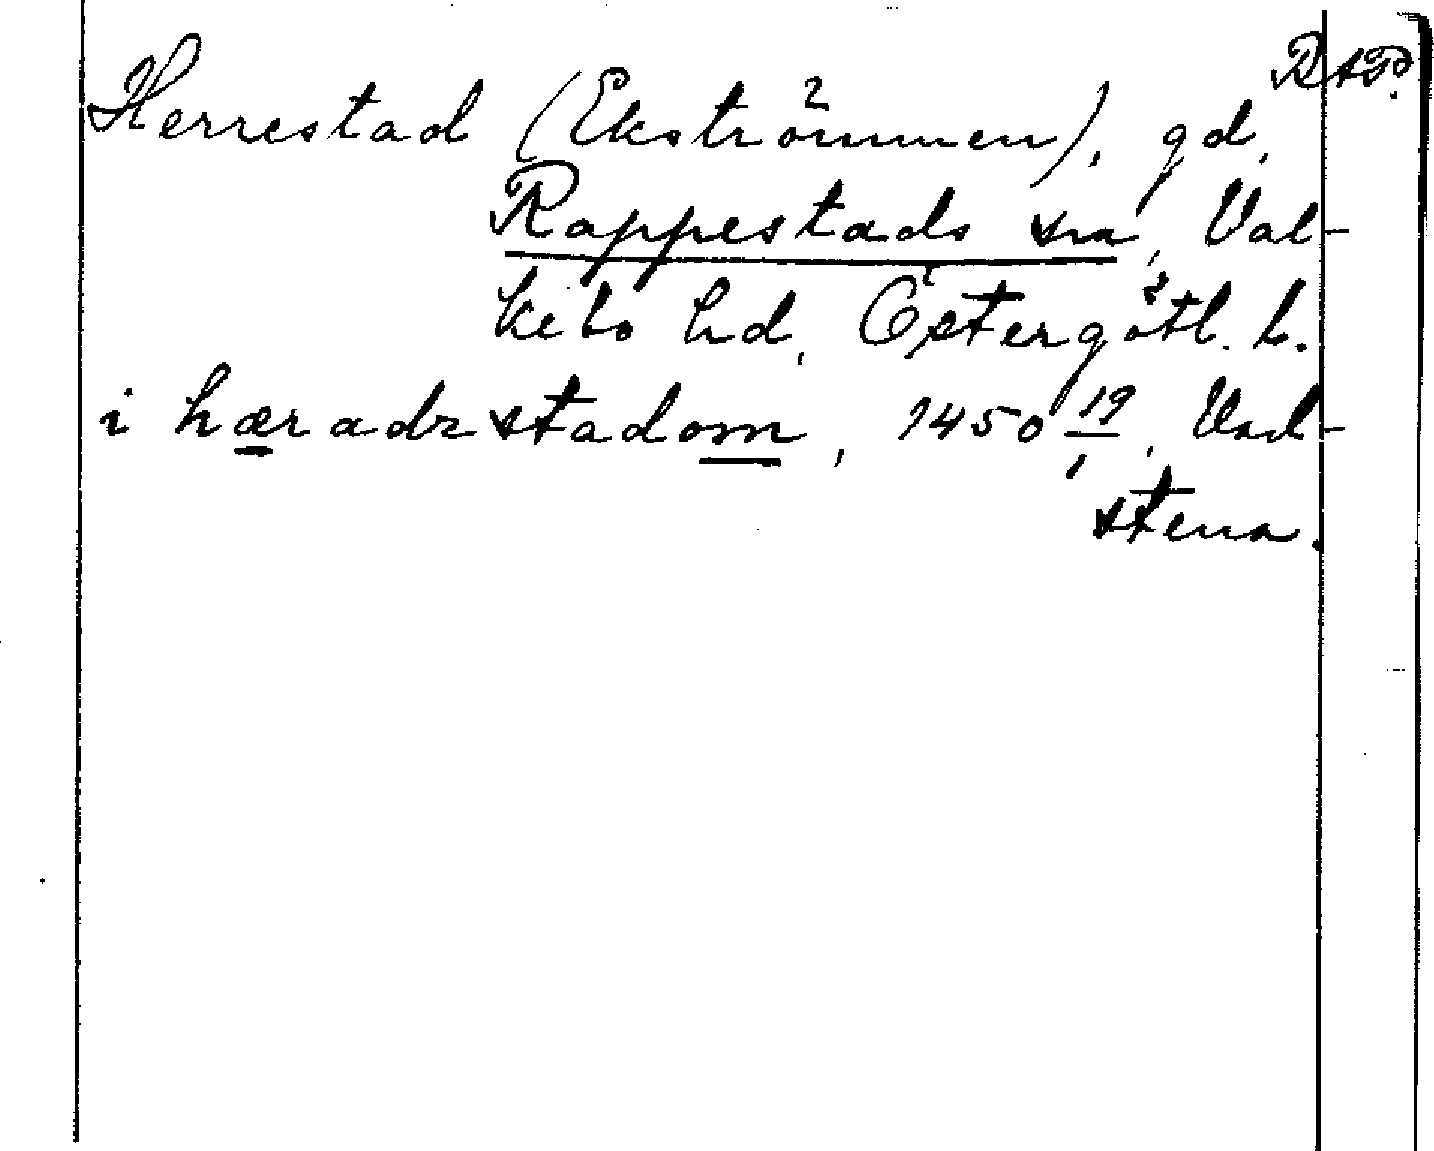 RAP.
Herrestad (Ekströmmen), gd,
Rappestads sn, Val-
kebo hd, Östergötl. l.
i hæradzstadom, 1450 19/1, Vad-
stena.